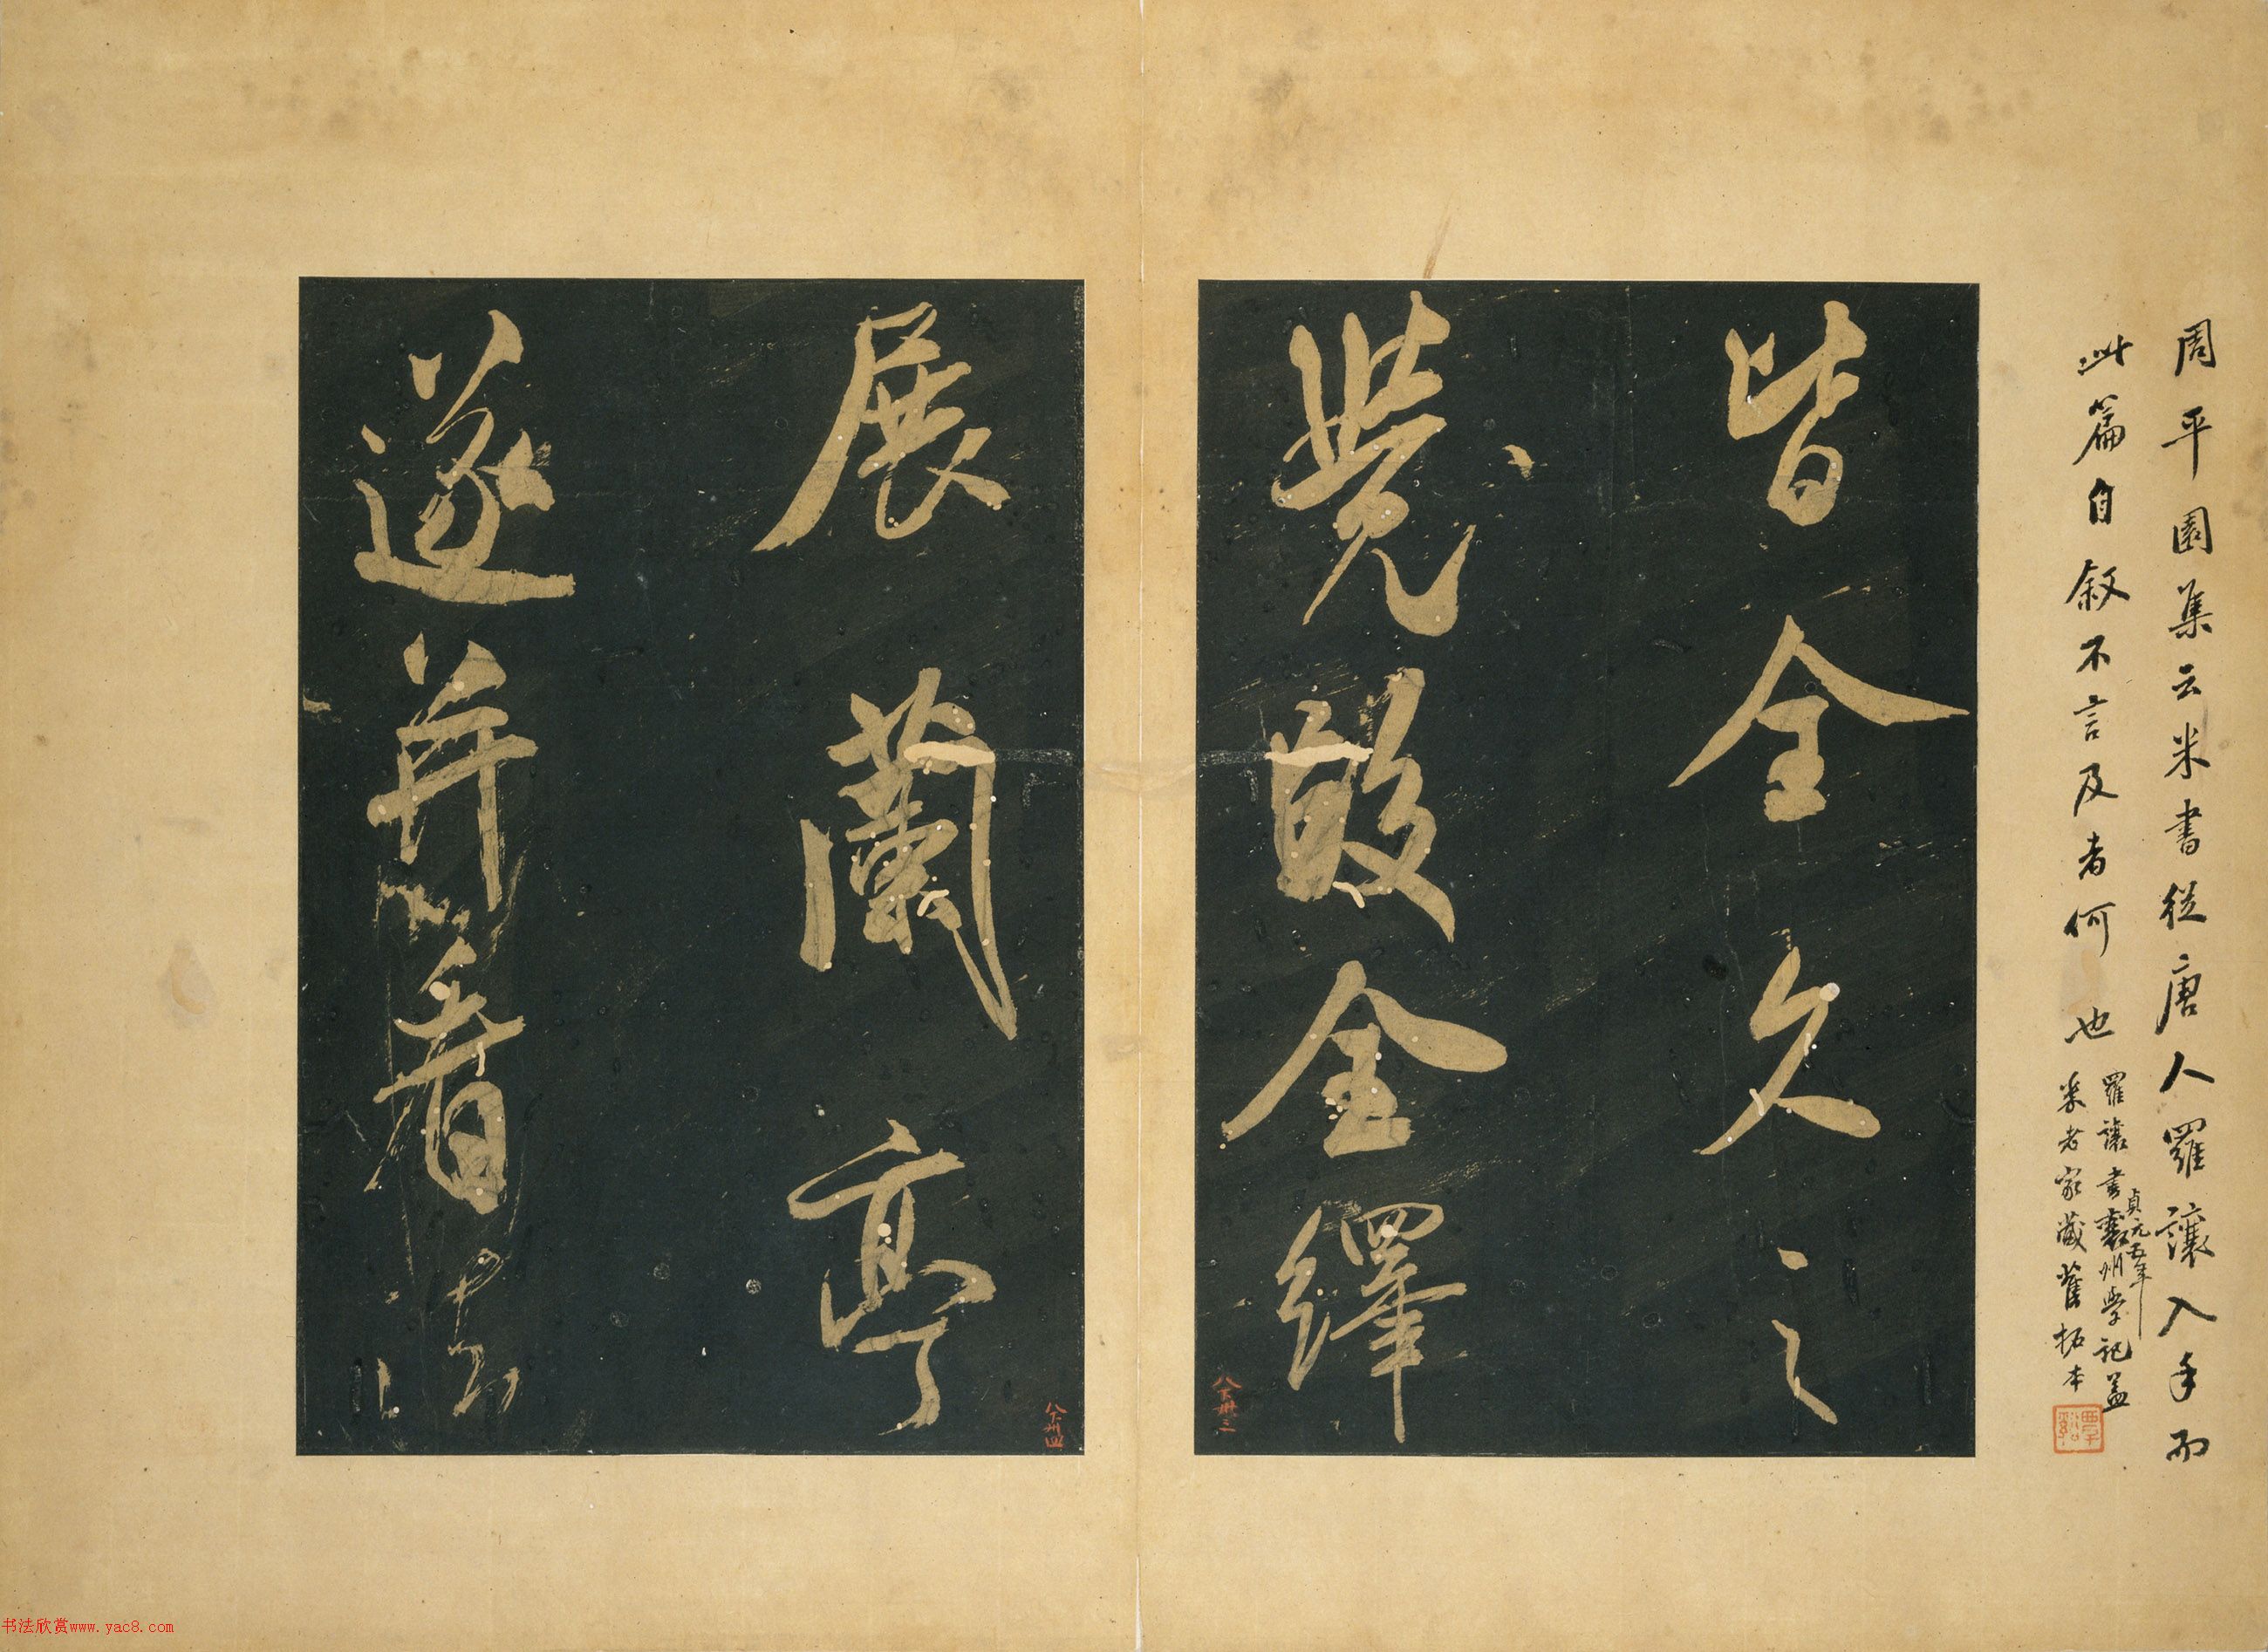 周平園集云米書從唐人羅讓入手而
此篇自敘不言及者何也
羅讓書襄州學記蓋
貞元五年
米老家藏舊拓本
覃谿
皆全久之
覺段全繹
展蘭亭
遂并看法
八下卅三
八下卅四
书法欣赏www.yac8.com